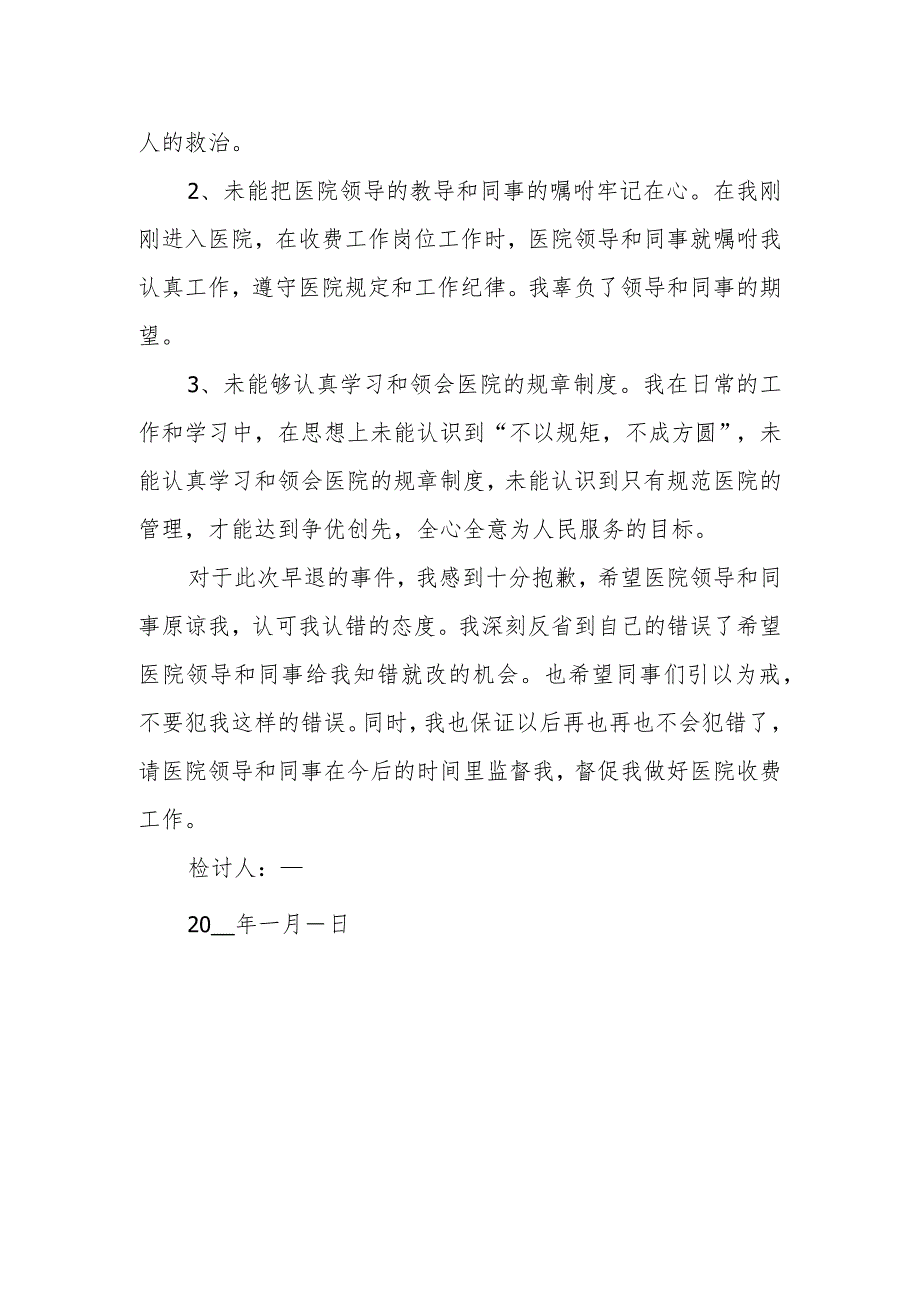 人的救治。
2、未能把医院领导的教导和同事的嘱咐牢记在心。在我刚
刚进入医院，在收费工作岗位工作时，医院领导和同事就嘱咐我
认真工作，遵守医院规定和工作纪律。我辜负了领导和同事的期
望。
3、未能够认真学习和领会医院的规章制度。我在日常的工
作和学习中，在思想上未能认识到“不以规矩，不成方圆”，未
能认真学习和领会医院的规章制度，未能认识到只有规范医院的
管理，才能达到争优创先，全心全意为人民服务的目标。
对于此次早退的事件，我感到十分抱歉，希望医院领导和同
事原谅我，认可我认错的态度。我深刻反省到自己的错误了希望
医院领导和同事给我知错就改的机会。也希望同事们引以为戒，
不要犯我这样的错误。同时，我也保证以后再也再也不会犯错了，
请医院领导和同事在今后的时间里监督我，督促我做好医院收费
工作。
检讨人：—
20__年一月一日